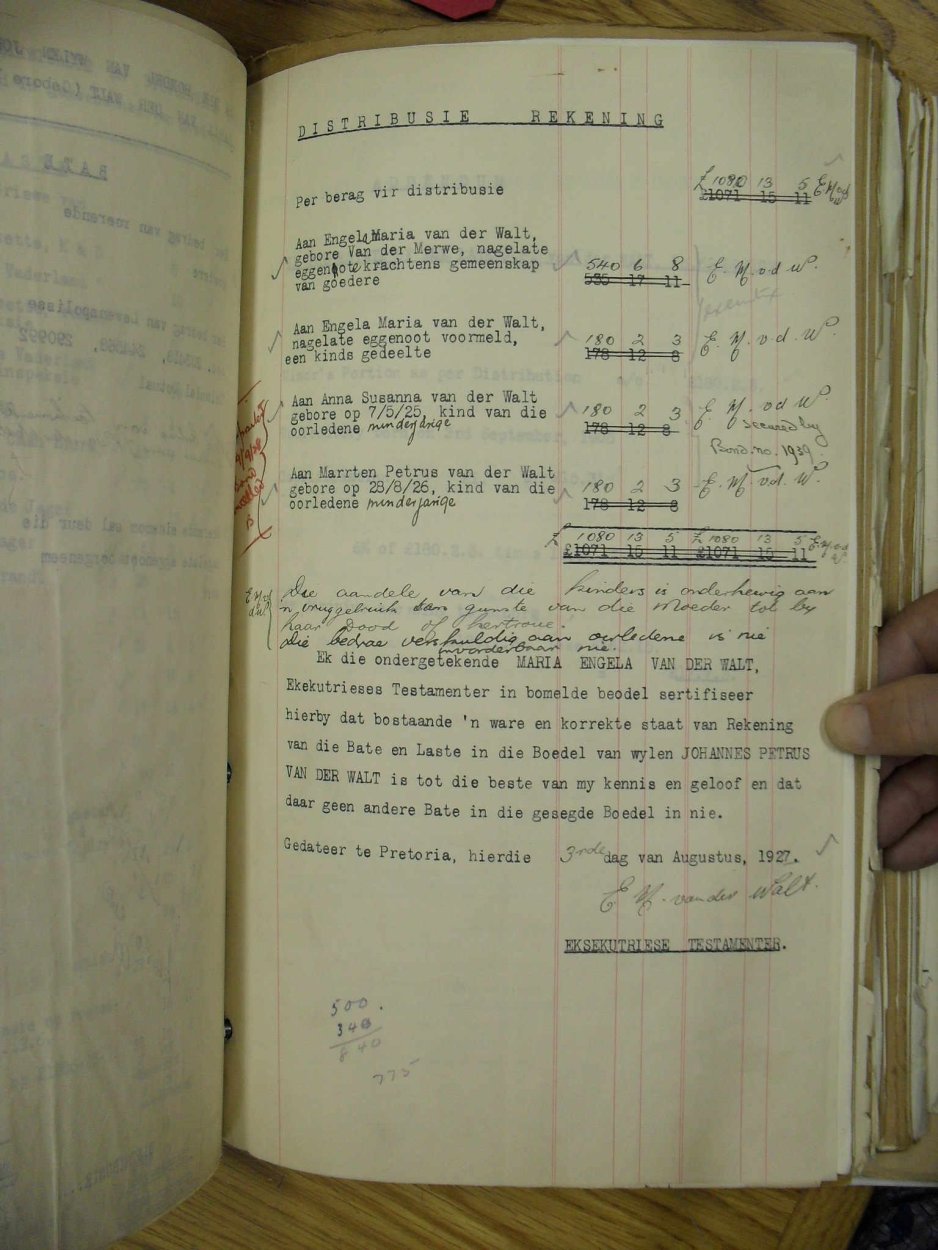 DISTRIBUSIE REKENING
£ 1080 13 5
Per berag vir distribusie £1071 15 11
Aan Engela Maria van der Walt,
gebore Van der Merwe, nagelate
eggenote krachtens gemeenskap 540 6 8 E. M. v d W.
van goedere 535 17 11
Aan Engela Maria van der Walt,
nagelate eggenoot voormeld, 180 2 3 E. M. v. d. W.
een kinds gedeelte 178 12 8
Aan Anna Susanna van der Walt
gebore op 7/5/25, kind van die 180 2 3 E M. v d W.
oorledene minderjarige 178 12 8 secured by
Bond no. 1939
Aan Marrten Petrus van der Walt
gebore op 28/8/26, kind van die 180 2 3 E. M. v d. W.
oorledene minderjarige 178 12 8
£ 1080 13 5 £ 1080 13 5
£1071 15 11 £1071 15 11
Die aandele van die kinders is onderhewig aan
'n vruggebruik ten gunste van die Moeder tot by
haar Dood of hertroue.
Die bedrae verskuldig aan oorledene is nie
invorderbaar nie.
Ek die ondergetekende MARIA ENGELA VAN DER WALT,
Ekekutrieses Testamenter in bomelde beodel sertifiseer
hierby dat bostaande 'n ware en korrekte staat van Rekening
van die Bate en Laste in die Boedel van wylen JOHANNES PETRUS
VAN DER WALT is tot die beste van my kennis en geloof en dat
daar geen andere Bate in die gesegde Boedel in nie.
Gedateer te Pretoria, hierdie 3rde dag van Augustus, 1927.
E M. van der Walt.
EKSEKUTRIESE TESTAMENTER.
500.
340
840
775